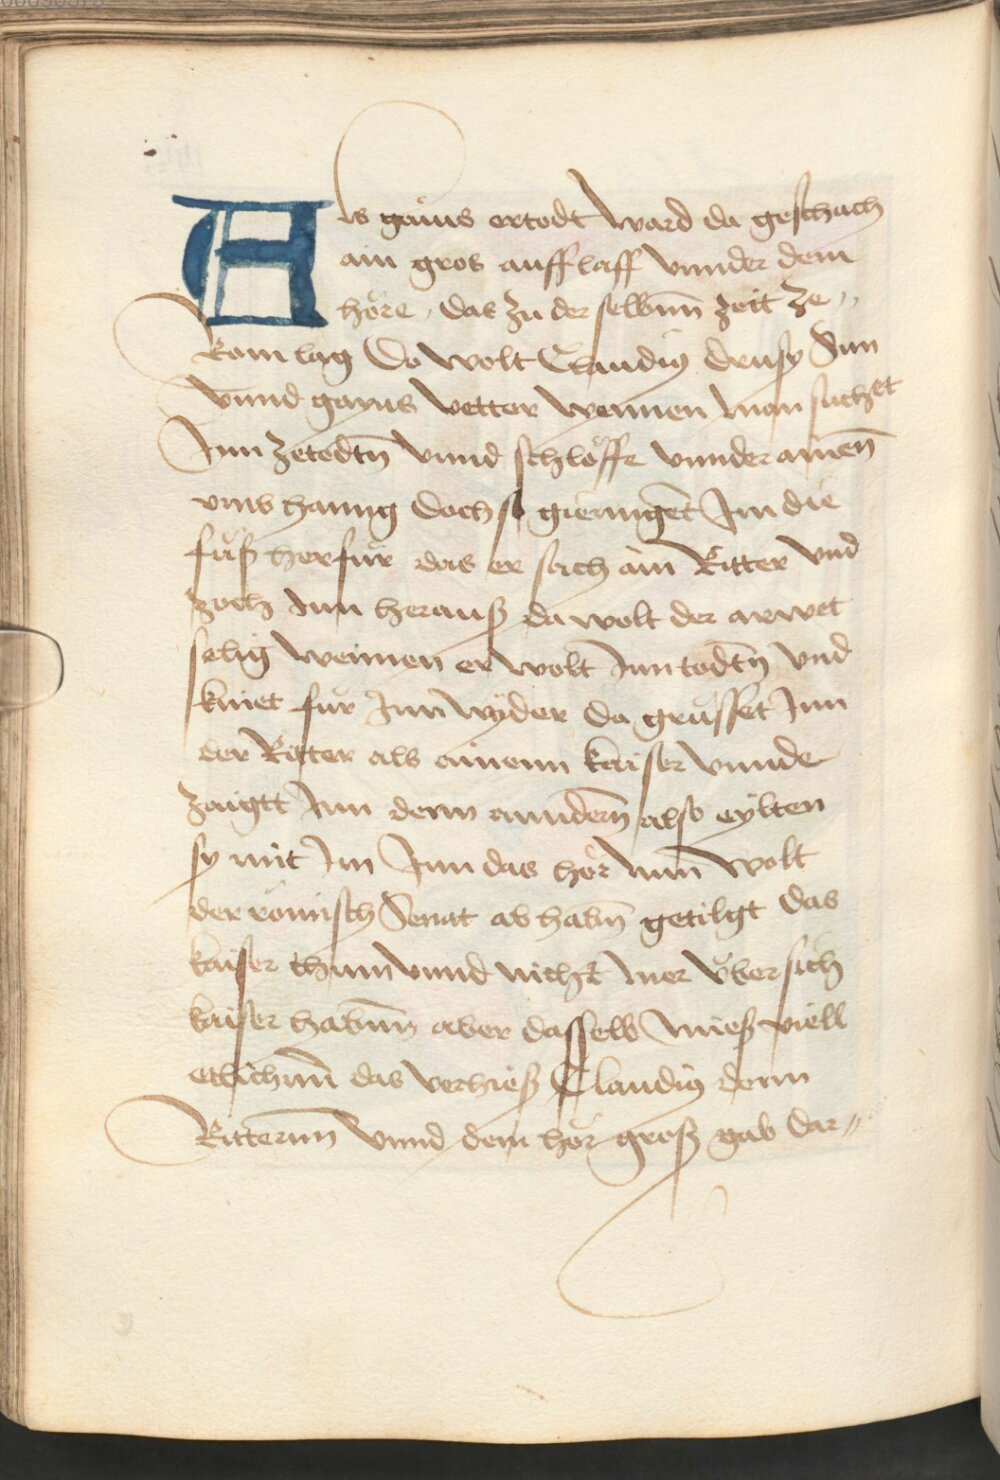 Als gaius ertodt ward da geschach
ain gros aufflaff vnnder dem
höre, das zu der selbnn zeit ze„
Rom lag Do wolt Claudiq drusy Sun
vnnd gayus vetter wennen man suchet
Inn zetodtn vnnd schloffe vnnder ainen
vmbhanng doch so giennget Im die
füß herfür das er sach ain Ritter vnd
zoch Inn herauß da wolt der arwet
selig weinen er wolt Inn todtn vnd
kniet für Inn wyder da grüsset Inn
der Ritter als ainenn kaiser vnnde
zaigtt Inn denn anndern also eylten
sy mit Im Inn das hör Nun wolt
der römisch Senat ab habn getilgt das
kaiser thum vnnd nicht mer über sich
kaiser habnn aber dasselb mieß viell
etlichnn das verhieß Claudiq denn
Ritternn vnnd dem hör groß gab dar„